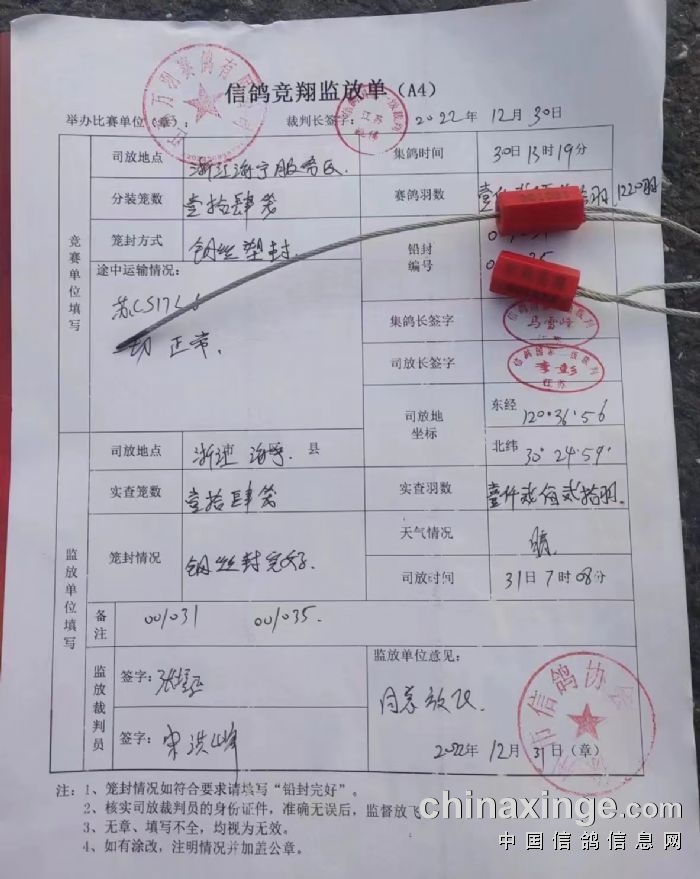 信鸽竞翔监放单（A4）
举办比赛单位（章）： 裁判长签字： 2022年 12月30日
竞赛单位填写
司放地点 浙江海宁服务区. 集鸽时间 30日13时19分
分装笼数 壹拾肆笼 赛鸽羽数 1220羽
笼封方式 钢丝塑封. 铅封编号
途中运输情况：
苏C517L
切 正常.
集鸽长签字 马雪峰
司放长签字 李彭
司放地坐标 东经 120°36′56
北纬 30°24′59′
监放单位填写
司放地点 海宁. 县 实查羽数 壹仟贰佰贰拾羽.
实查笼数 壹拾肆笼
天气情况 晴
笼封情况 钢丝封完好. 司放时间 31日7时08分
备注 001031 001035.
监放裁判员 签字： 监放单位意见：
同意放飞
签字：宋洪峰
2022年 12月31日（章）
市信鸽协会
注：1、笼封情况如符合要求请填写“铅封完好”。
2、核实司放裁判员的身份证件，准确无误后，监督放飞
3、无章、填写不全，均视为无效。
4、如有涂改，注明情况并加盖公章。
chinaxinge.com
中国信鸽信息网